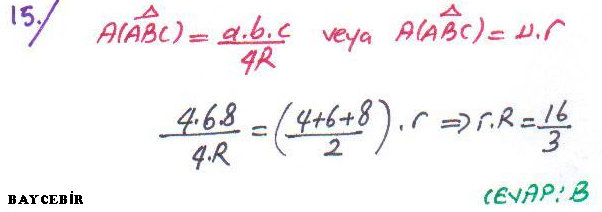 15./ A(ABC) = a.b.c / 4R veya A(ABC) = u.r
4.6.8 / 4.R = (4+6+8 / 2) . r ⇒ r.R = 16 / 3
BAYCEBİR CEVAP: B